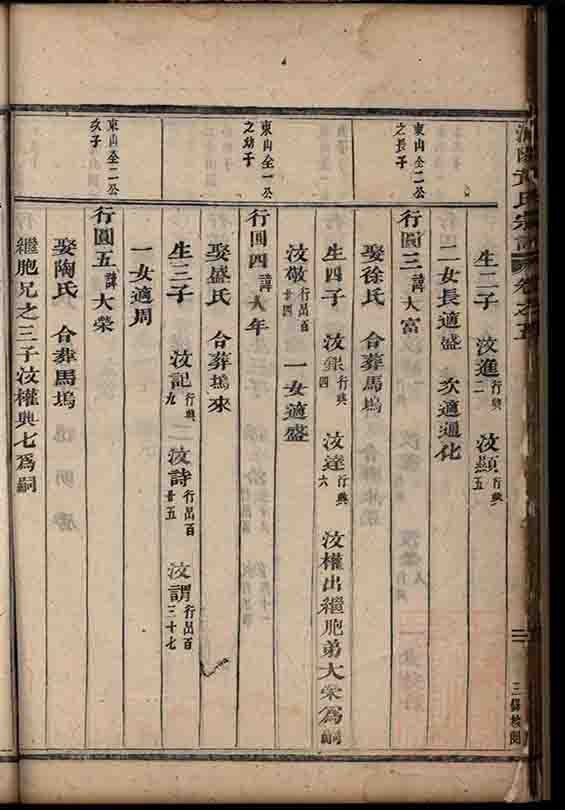 氏宗譜 卷之五
三 三槐校閱
生二子 汝進行興二 汝顯行興五
二女長適盛 次適通化
東山全二公之長子
行圓三諱大富
娶徐氏 合葬馬塢
生四子 汝銀行興四 汝達行興六 汝權出繼胞弟大榮爲嗣
汝敬行出百廿四 一女適盛
東山全一公之幼子
行圓四諱大年
娶盛氏 合葬塢來
生三子 汝記行興九 汝詩行出百廿五 汝謂行出百三十七
一女適周
東山全二公次子
行圓五諱大榮
娶陶氏 合葬馬塢
繼胞兄之三子汝權興七爲嗣